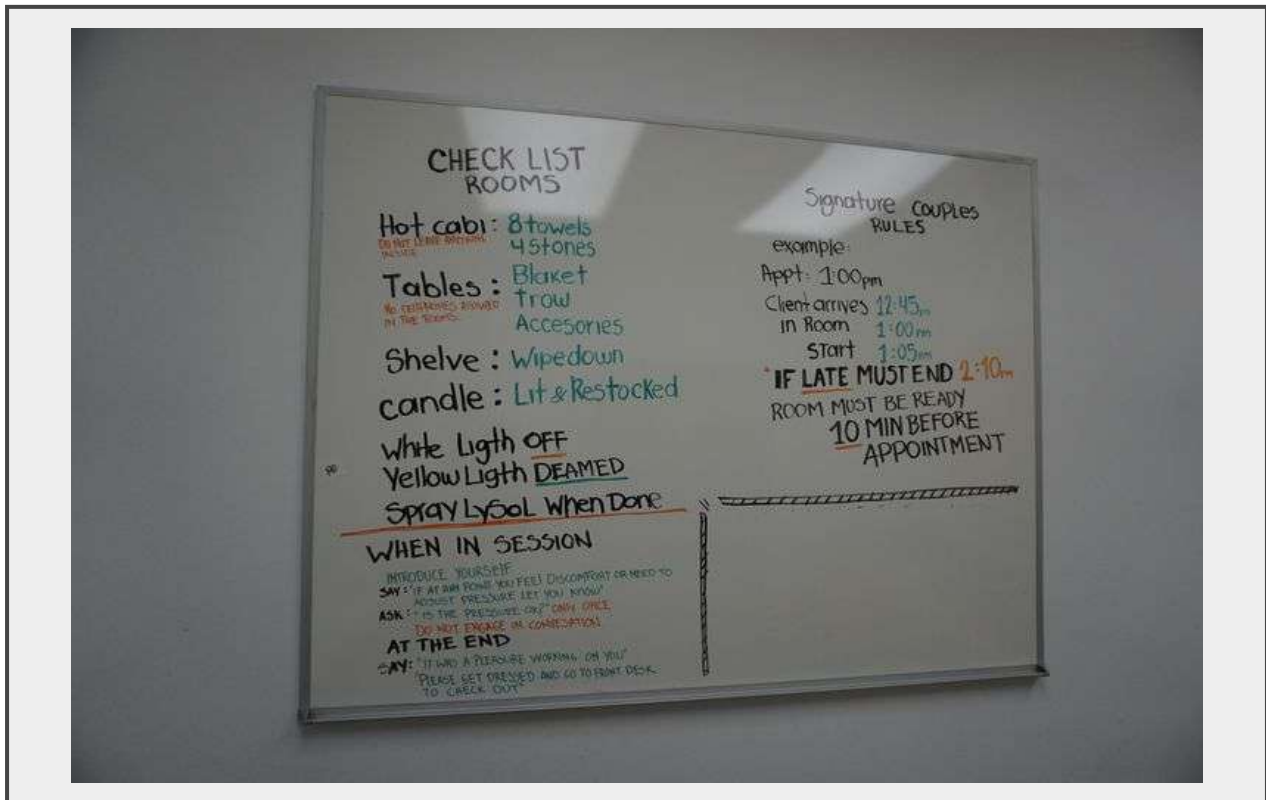 CHECK LIST
ROOMS
Hot cabi: 8 towels
DO NOT LEAVE ANYTHING
INSIDE
4 Stones
Tables: Blaket
Trow
NO CELLPHONES ALLOWED
IN THE ROOMS
Accesories
Shelve: Wipedown
candle: Lit & Restocked
White Ligth OFF
Yellow Ligth DEAMED
Spray LySoL When Done
WHEN IN SESSION
INTRODUCE YOURSELF
SAY: "IF AT ANY POINT YOU FEEL DISCOMFORT OR NEED TO
ADJUST PRESSURE LET YOU KNOW"
ASK: "IS THE PRESSURE OK?" ONLY ONCE
DO NOT ENGAGE IN CONVESATION
AT THE END
SAY: "IT WAS A PLEASURE WORKING ON YOU"
"PLEASE GET DRESSED AND GO TO FRONT DESK
TO CHECK OUT"
Signature COUPLES
RULES
example:
Appt: 1:00pm
Client arrives 12:45pm
in Room 1:00pm
START 1:05pm
*IF LATE MUST END 2:10pm
ROOM MUST BE READY
10 MIN BEFORE
APPOINTMENT